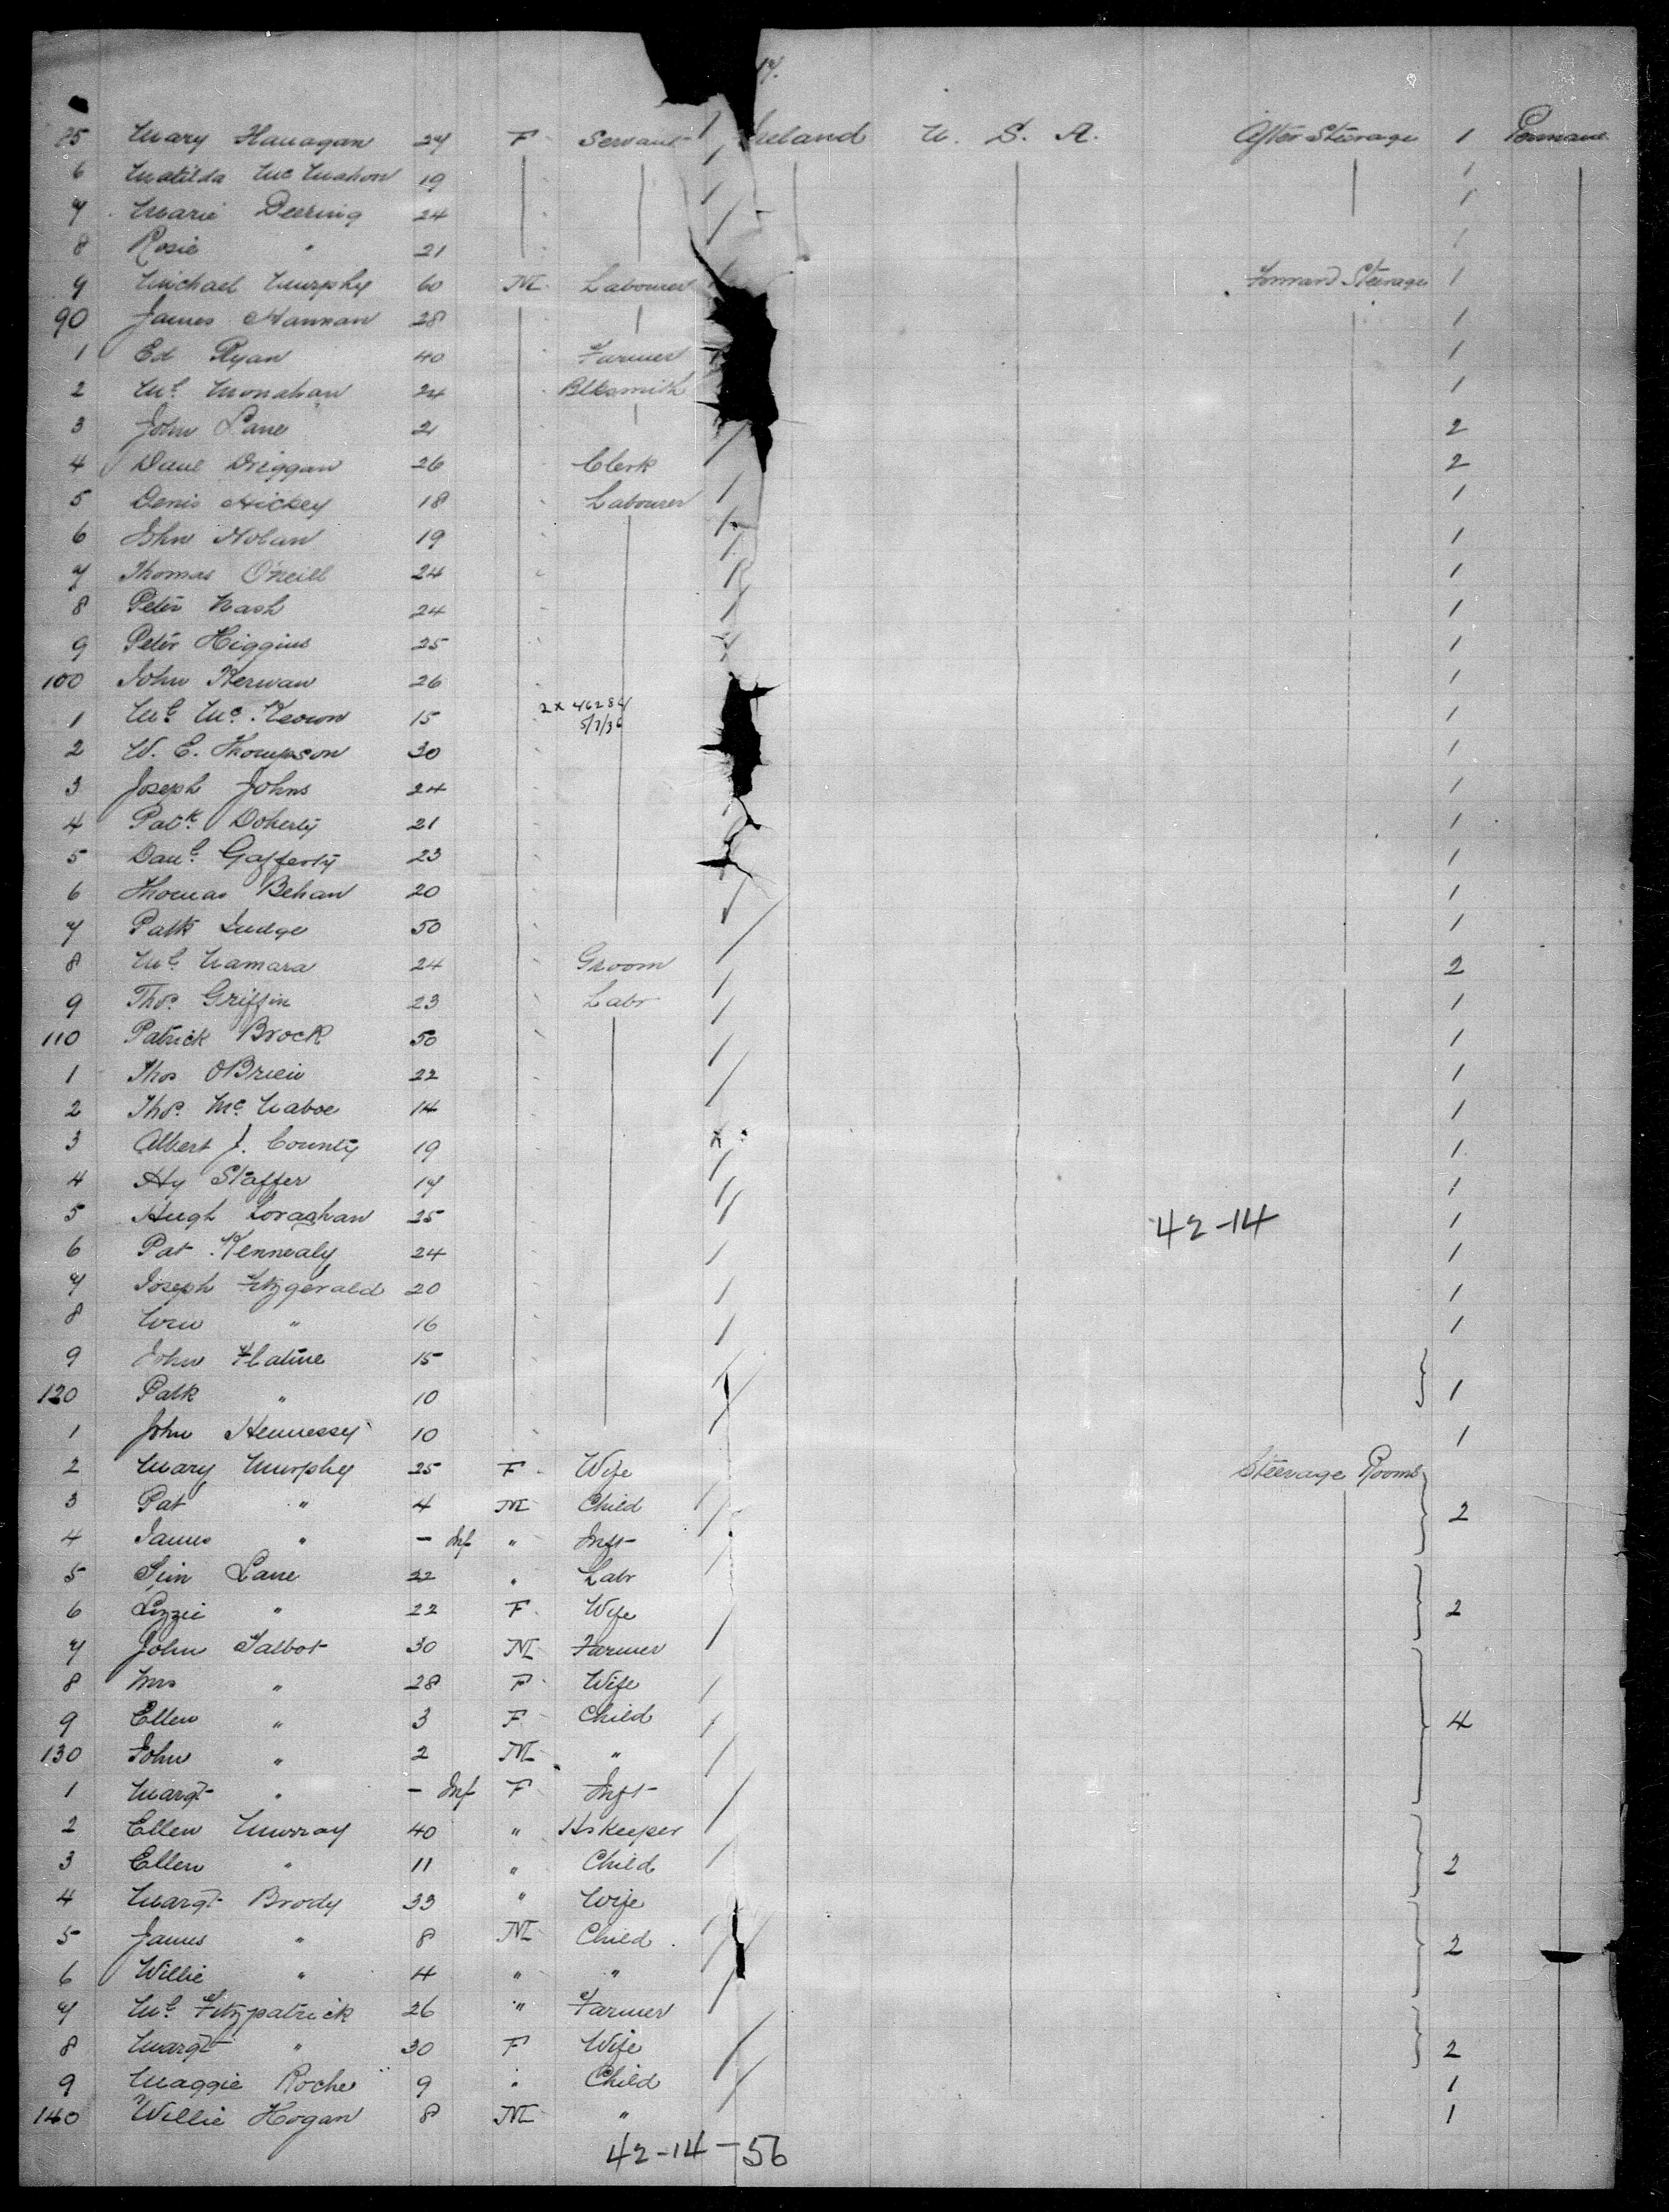 85 Mary Flanagan 27 F Servant Ireland U. S. A. After Steerage 1
6 Matilda McMahon 19 1
7 Marie Deering 24 1
8 Rosie " 21 1
9 Michael Murphy 60 M Labourer Forward Steerage 1
90 James Hannan 28 1
1 Ed Ryan 40 Farmer 1
2 Ml Monahan 24 Blksmith 1
3 John Lane 21 2
4 Danl Driggan 26 Clerk 2
5 Denis Hickey 18 Labourer 1
6 John Nolan 19 1
7 Thomas O'Neill 24 1
8 Peter Nash 24 1
9 Peter Higgins 25 1
100 John Kerwan 26 1
1 Ml Mc Keown 15 2x46284 1
5/7/36
2 W. E. Thompson 30 1
3 Joseph Johns 24 1
4 Patk Doherty 21 1
5 Danl Gafferty 23 1
6 Thomas Behan 20 1
7 Patk Judge 50 1
8 Ml Namara 24 Groom 2
9 Thos Griffin 23 Labr 1
110 Patrick Brock 50 1
1 Thos OBrien 22 1
2 Thos Mc Naboe 14 1
3 Albert J. County 19 x 1
4 Hy Staffer 17 1
5 Hugh Loraghan 25 42-14 1
6 Pat Kennealy 24 1
7 Joseph Fitzgerald 20 1
8 Wm " 16 1
9 John Flatine 15
120 Patk " 10 1
1 John Hennessy 10 1
2 Mary Murphy 25 F Wife Steerage Rooms
3 Pat " 4 M Child 2
4 James " - Inf " Inft
5 Jim Lane 22 " Labr
6 Lizzie " 22 F Wife 2
7 John Talbot 30 M Farmer
8 Mrs " 28 F Wife
9 Ellen " 3 F Child 4
130 John " 2 M "
1 Margt " - Inf F Inft
2 Ellen Murray 40 " Hskeeper
3 Ellen " 11 " Child 2
4 Margt Brody 33 " Wife
5 James " 8 M Child 2
6 Willie " 4 " "
7 Ml Fitzpatrick 26 " Farmer
8 Margt " 30 F Wife 2
9 Maggie Roche 9 " Child 1
140 Willie Hogan 8 M " 1
42-14-56